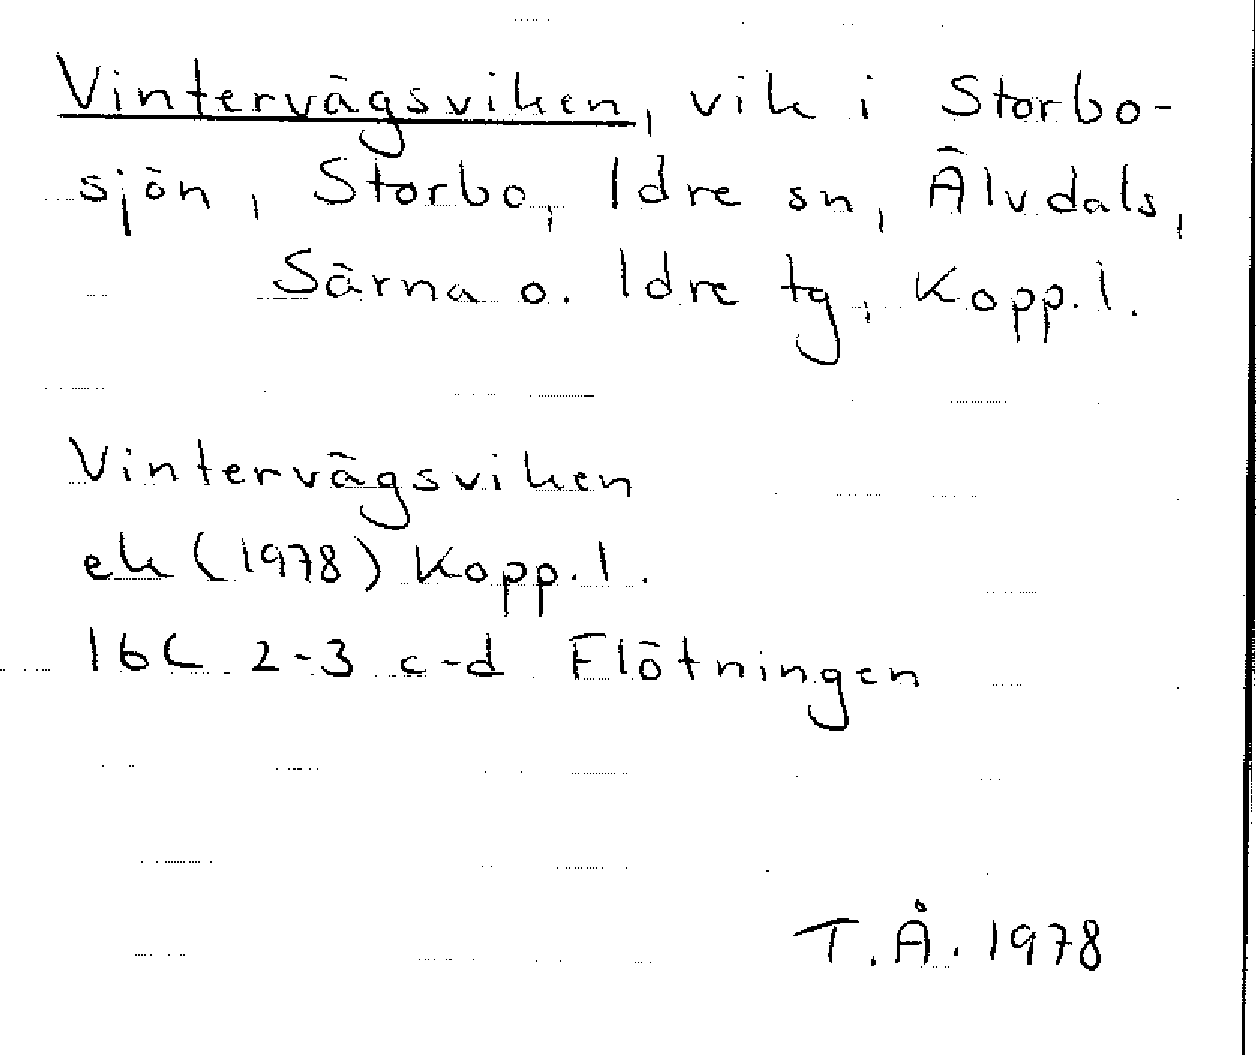 Vintervägsviken, vik i Storbo-
sjön, Storbo, Idre sn, Älvdals,
Särna o. Idre tg, Kopp. l.
Vintervägsviken
ek (1978) Kopp. l.
16C 2-3 c-d Flötningen
T.Å. 1978